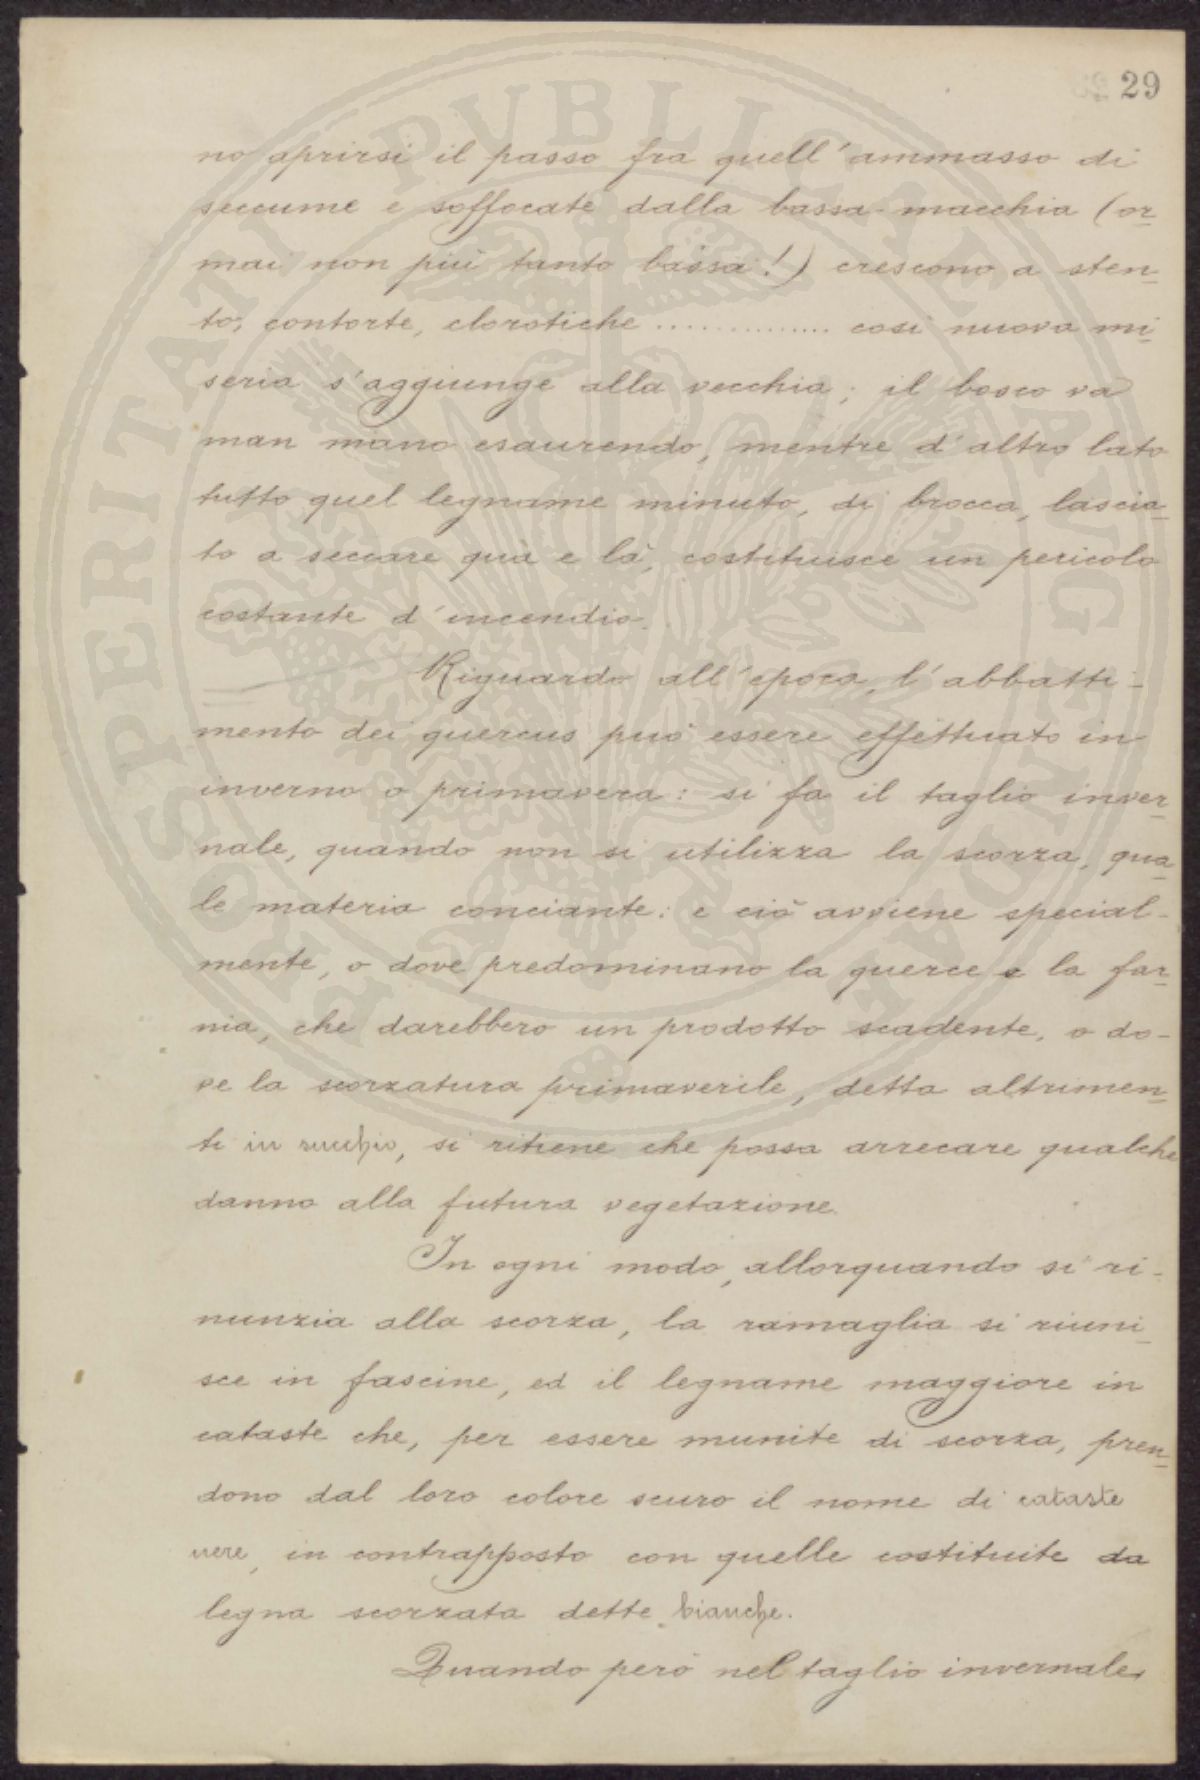 29
no aprirsi il passo fra quell'ammasso di
seccume e soffocate dalla bassa macchia (or-
mai non più tanto bassa!) crescono a sten-
to, contorte, clorotiche .............. così nuova mi-
seria s'aggiunge alla vecchia; il bosco va
man mano esaurendo, mentre d'altro lato
tutto quel legname minuto, di brocca, lascia-
to a seccare quà e là, costituisce un pericolo
costante d'incendio.
Riguardo all'epoca, l'abbatti-
mento dei quercus può essere effettuato in
inverno o primavera: si fa il taglio inver-
nale, quando non si utilizza la scorza, qua-
le materia conciante: e ciò avviene special-
mente, o dove predominano la querce e la far-
nia, che darebbero un prodotto scadente, o do-
ve la scorzatura primaverile, detta altrimen-
ti in succhio, si ritiene che possa arrecare qualche
danno alla futura vegetazione.
In ogni modo, allorquando si ri-
nunzia alla scorza, la ramaglia si riuni-
sce in fascine, ed il legname maggiore in
cataste che, per essere munite di scorza, pren-
dono dal loro colore scuro il nome di cataste
nere, in contrapposto con quelle costituite da
legna scorzata dette bianche.
Quando però nel taglio invernale,
PROSPERITATI PVBLICAE AVGENDAE